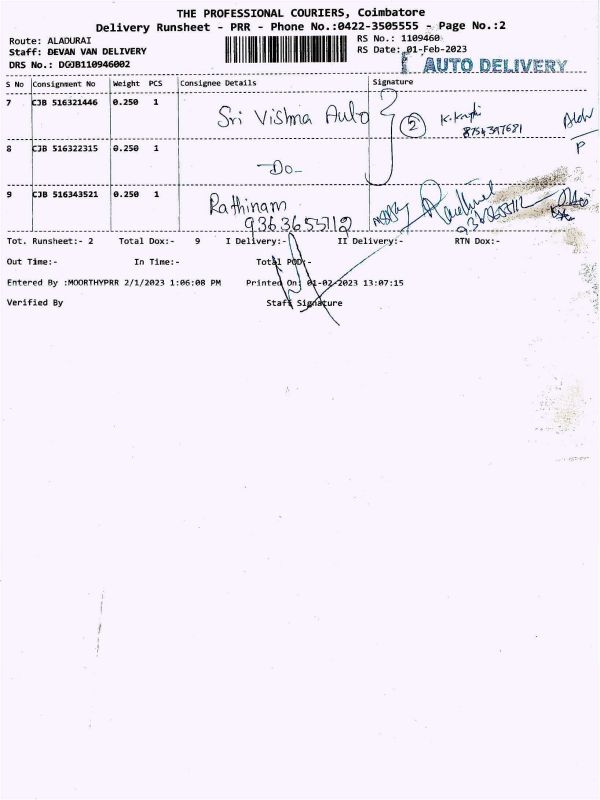 THE PROFESSIONAL COURIERS, Coimbatore
Delivery Runsheet - PRR - Phone No.:0422-3505555 - Page No.:2
Route: ALADURAI
RS No.: 1109460
Staff: DEVAN VAN DELIVERY
RS Date: 01-Feb-2023
DRS No.: DGJB110946002
AUTO DELIVERY
S No Consignment No Weight PCS Consignee Details Signature
7 CJB 516321446 0.250 1 Sri Vishma Auto 2
8754397681
8 CJB 516322315 0.250 1 -Do- P
9 CJB 516343521 0.250 1 Rathinam
9363655712 9363655712
Tot. Runsheet:- 2 Total Dox:- 9 I Delivery:- II Delivery:- RTN Dox:-
Out Time:- In Time:- Total POD:-
Entered By :MOORTHYPRR 2/1/2023 1:06:08 PM Printed On: 01-02-2023 13:07:15
Verified By Staff Signature